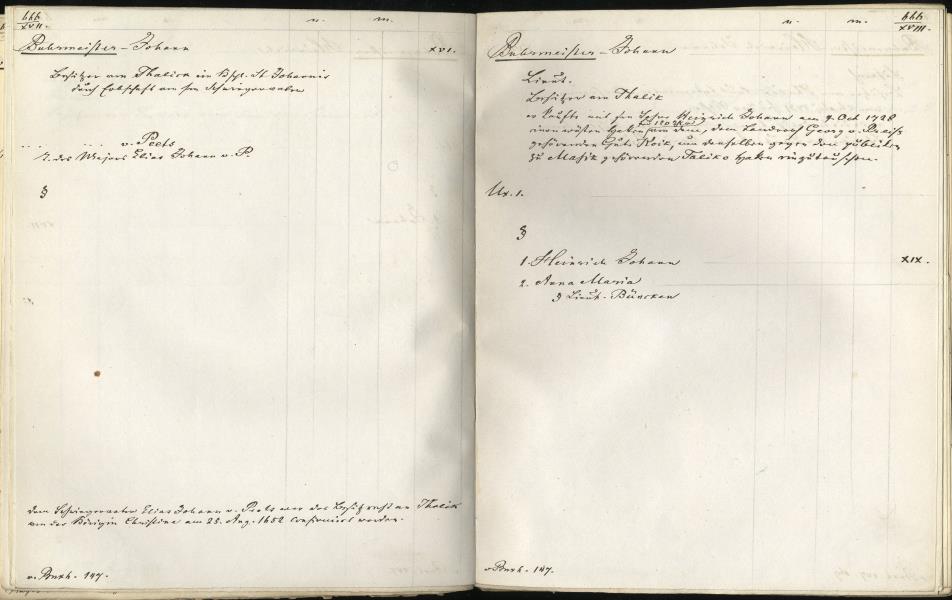 666
XVII.
n.
m.
Buhrmeister - Johann
XVI.
Besitzer von Thalick im Kspl. St. Johannis
durch Erbschaft von sm Schwiegervater
v. Peets
T. des Majors Elias Johann v. P.
§
dem Schwiegervater Elias Johann v. Peets war das Besitzrecht an Thalik
von der Königin Christine am 23. Aug. 1652 confirmirt worden.
v. Buxh. 147.
n.
m.
666
XVIII.
Buhrmeister - Johann
Lieut.
Besitzer von Thalik
er kaufte mit sm Sohne Heinrich Johann am 9. Oct 1728
einen wüsten Haken von dem, dem Landrath Georg v.
gehörenden Gute Koik, um denselben gegen den publiken
zu Masik gehörenden Taliko Haken einzutauschen.
Ux. 1.
§
1. Heinrich Johann
XIX.
2. Anna Maria
Lieut. Büncken
v Buxh. 147.